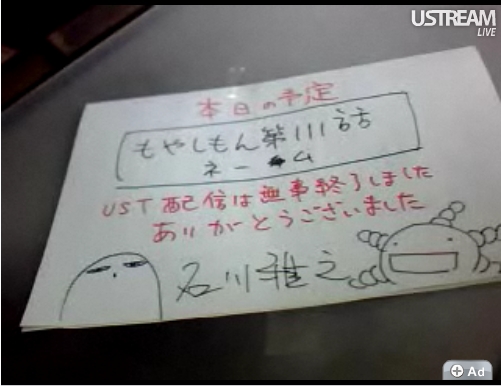 USTREAM
LIVE
本日の予定
もやしもん第111話
ネーム
UST配信は無事終了しました
ありがとうございました
石川雅之
Ad